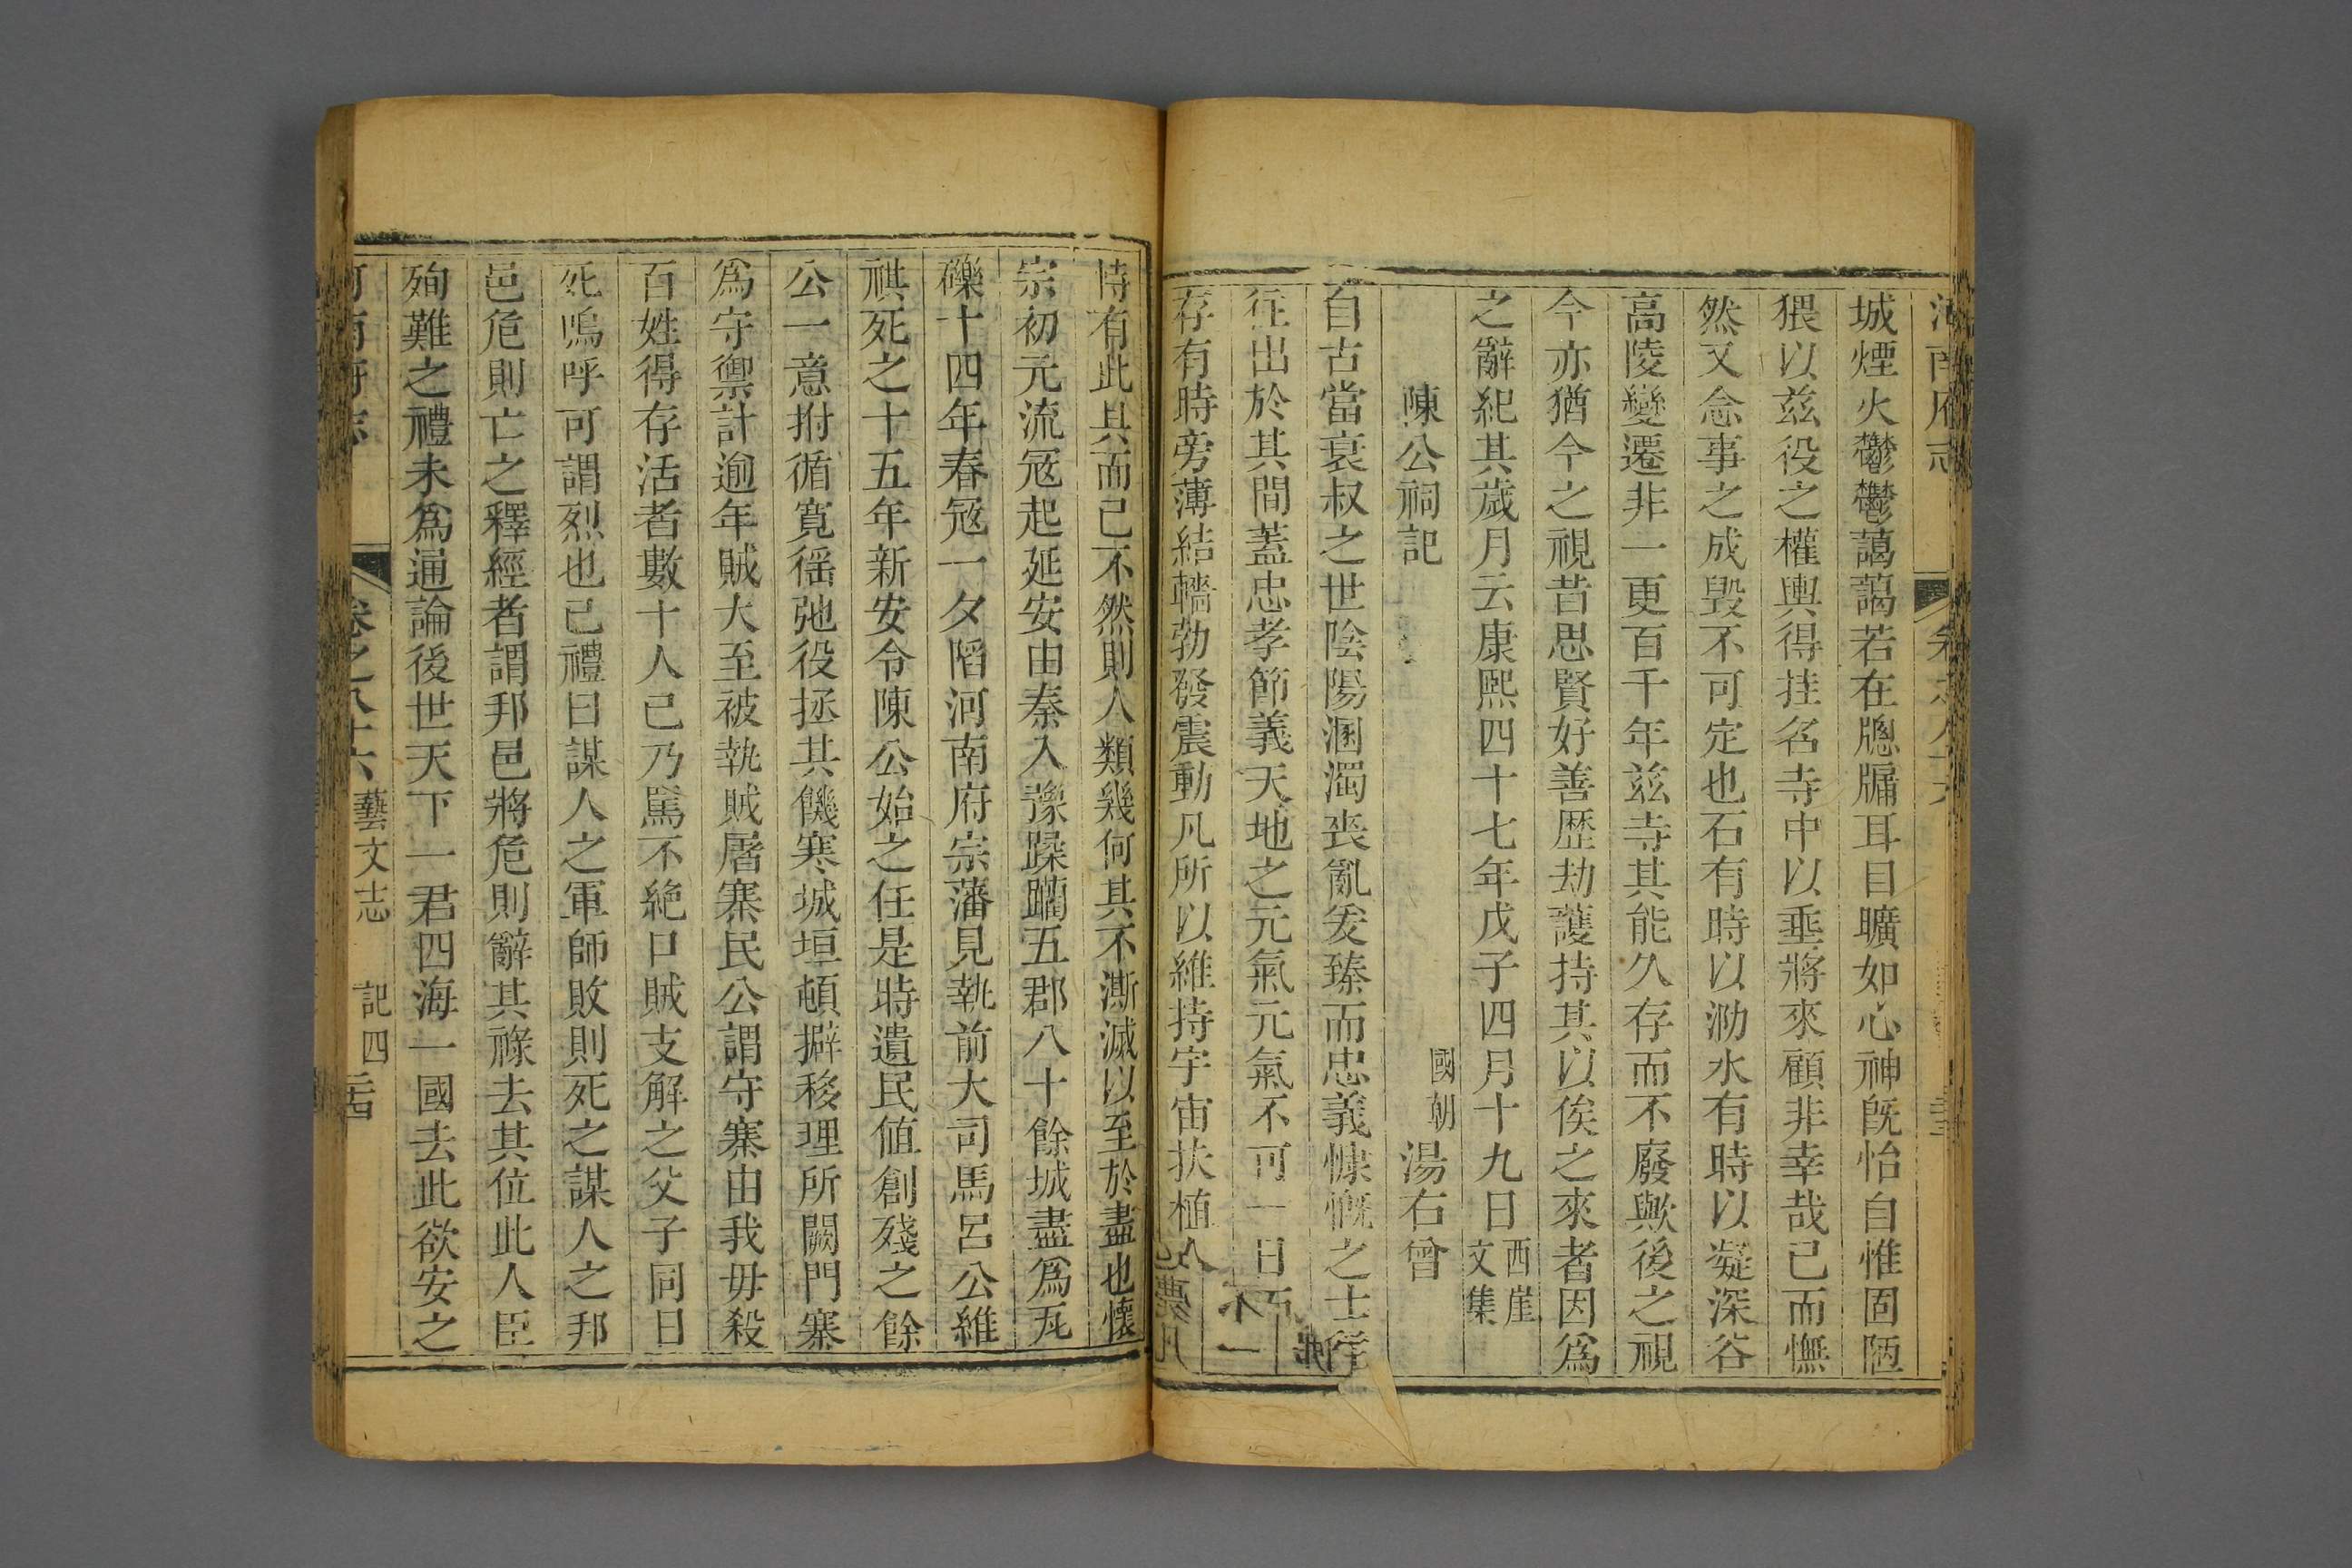 城煙火鬱鬱藹藹若在牕牖耳目曠如心神旣怡自惟固陋
猥以茲役之權輿得挂名寺中以垂將來顧非幸哉已而憮
然又念事之成毀不可定也石有時以泐水有時以凝深谷
高陵變遷非一更百千年茲寺其能久存而不廢歟後之視
今亦猶今之視昔思賢好善歷劫護持其以俟之來者因爲
之辭紀其歲月云康熙四十七年戊子四月十九日西崖文集
陳公祠記
國朝湯右曾
自古當衰叔之世陰陽溷濁喪亂荐臻而忠義慷慨之士
往出於其間蓋忠孝節義天地之元氣元氣不可一日
存有時旁薄結轖勃發震動凡所以維持宇宙扶植人
恃有此具而已不然則人類幾何其不澌滅以至於盡也懷
宗初元流冦起延安由秦入豫蹂躪五郡八十餘城盡爲瓦
礫十四年春冦一夕䧟河南府宗藩見執前大司馬呂公維
祺死之十五年新安令陳公始之任是時遺民値創殘之餘
公一意拊循寬徭弛役拯其饑寒城垣頓擗移理所闕門寨
爲守禦計逾年賊大至被執賊屠寨民公謂守寨由我毋殺
百姓得存活者數十人已乃罵不絶口賊支解之父子同日
死嗚呼可謂烈也已禮曰謀人之軍師敗則死之謀人之邦
邑危則亡之釋經者謂邦邑將危則辭其祿去其位此人臣
殉難之禮未爲通論後世天下一君四海一國去此欲安之
河南府志 卷之八十六 藝文志 記四